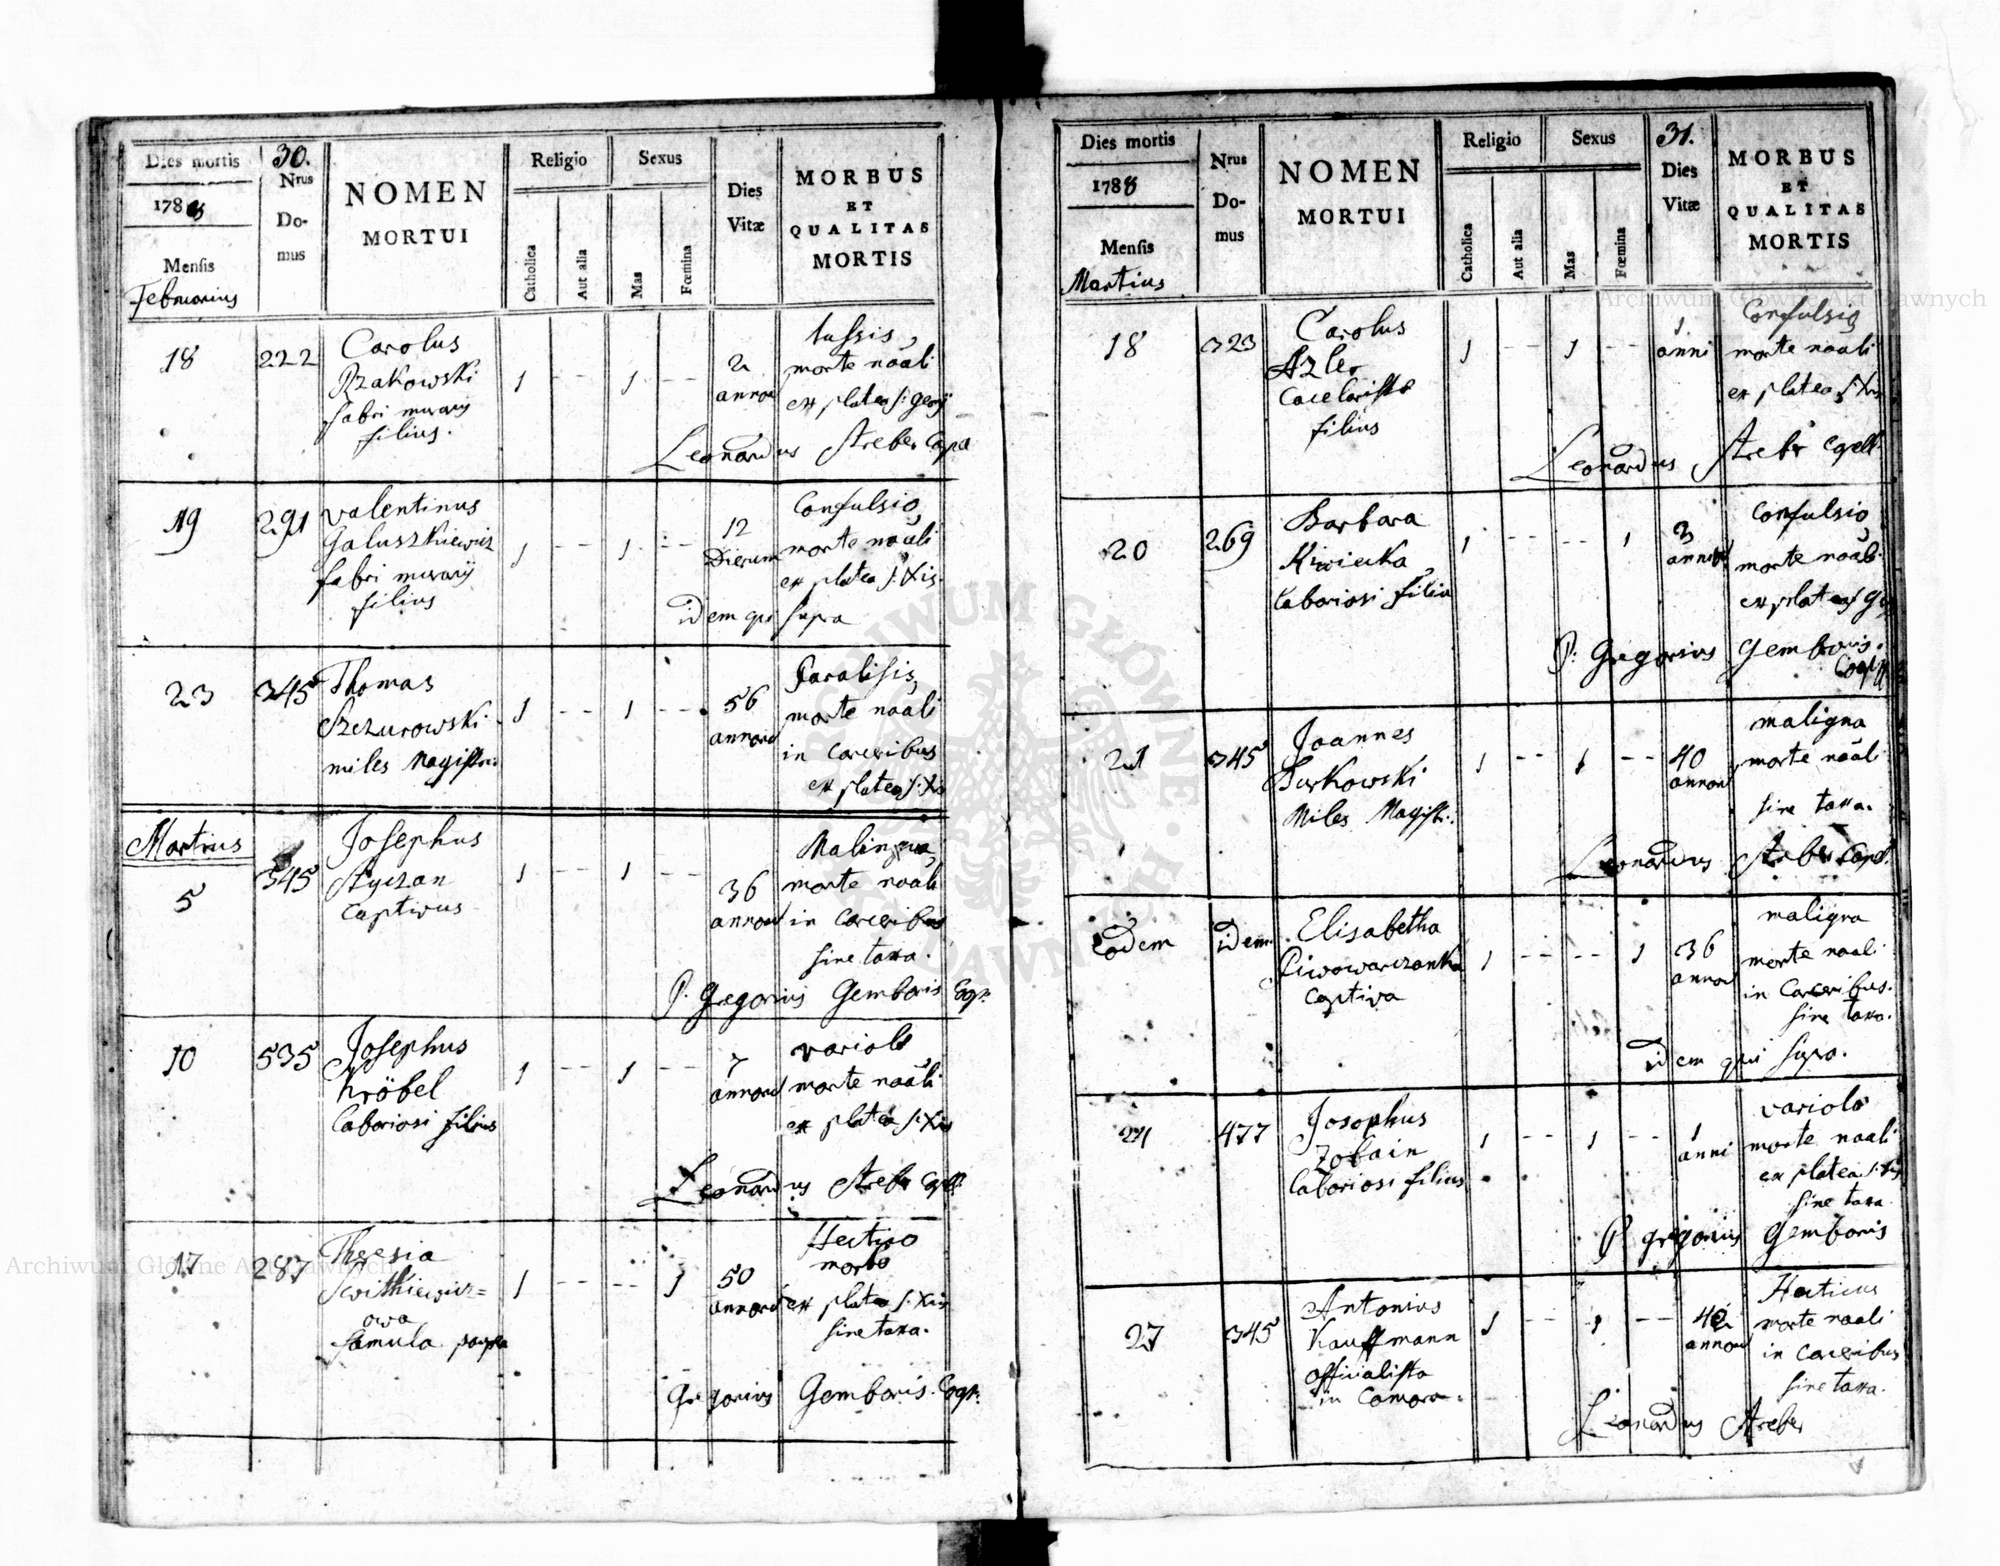 Dies mortis
30.
1788
Mensis
Februarius
Nrus
Do-
mus
NOMEN
MORTUI
Religio
Catholica
Aut alia
Sexus
Mas
Fœmina
Dies
Vitæ
MORBUS
ET
QUALITAS
MORTIS
18 222 Carolus
Rzakowski
fabri murarij
filius.
1 -- 1 --
2
annor
tussis,
morte naáli
ex platea S: Gerij
Leonardus Streber Capa
19 291 Valentinus
Galuszkiewicz
fabri murarij
filius
1 -- 1 --
12
Dierum
Confulsio,
morte naáli
ex platea S: Xis.
idem qui supra
23 345 Thomas
Szczurowski
miles Magistr:
1 -- 1 --
56
annor
Paralisis,
morte naáli
in carceribus
ex platea S: Xis
Martius
5 345 Josephus
Styczan
Captivus
1 -- 1 --
36
annor
morte naáli
in carceribus
sine taxa.
P. Gregorius Gemboris Cop.
10 535 Josephus
Kröbel
Laboriosi filius
1 -- 1 --
7
annor
variola
morte naáli
ex platea S: Xis
Leonardus Streber Copll.
17 287 Theresia
Switkiewicz=
owa
famula paupra
1 -- -- 1
50
annor
Hectico
morbo
ex platea S: Xis
sine taxa.
Gregorius Gemboris. Cop.
Dies mortis
1788
Mensis
Martius
Nrus
Do-
mus
NOMEN
MORTUI
Religio
Catholica
Aut alia
Sexus
Mas
Fœmina
31.
Dies
Vitæ
MORBUS
ET
QUALITAS
MORTIS
18 323 Carolus
Azler
filius
1 -- 1 --
1
anni
Confulsio
morte naáli
ex platea S: Xis
Leonardus Streber Copell.
20 269 Barbara
Kiwiecka,
Laboriosi filia
1 -- -- 1
3
annor
Confulsio,
morte naáli
ex platea S
P: Gregorius Gemboris.
21 345 Joannes
Burkowski
Miles Magistr:
1 -- 1 --
40
annor
maligna
morte naáli
sine taxa.
Leonardus Streber Capel.
Eodem idem. Elisabetha
Piwowarczanka
captiva
1 -- -- 1
36
annor
maligna
morte naali
in carceribus.
sine taxa.
idem qui supra.
24 477 Josophus
Zobain
Laboriosi filius
1 -- 1 --
1
anni
variola
morte naali
ex platea S: Xis
sine taxa
P. Grigorius Gemboris
27 345 Antonius
Kauffmann
officialista
in Camora.
1 -- 1 --
42
annor
Hecticus
morte naali
in carceribus
sine taxa.
Leonardus Streber
Archiwum Główne Akt Dawnych
Archiwum Główne Akt Dawnych
ARCHIWUM GŁÓWNE AKT DAWNYCH